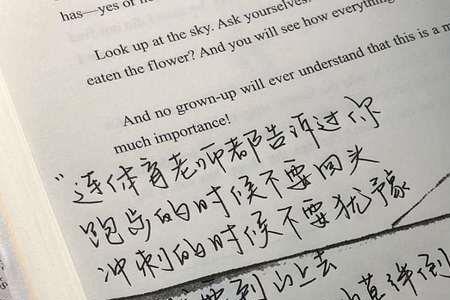 has—yes or
Look up at the sky. Ask yourselves:
eaten the flower? And you will see how everything
And no grown-up will ever understand that this is a m
much importance!
"连体育老师都告诉过你
跑步的时候不要回头
冲刺的时候不要犹豫